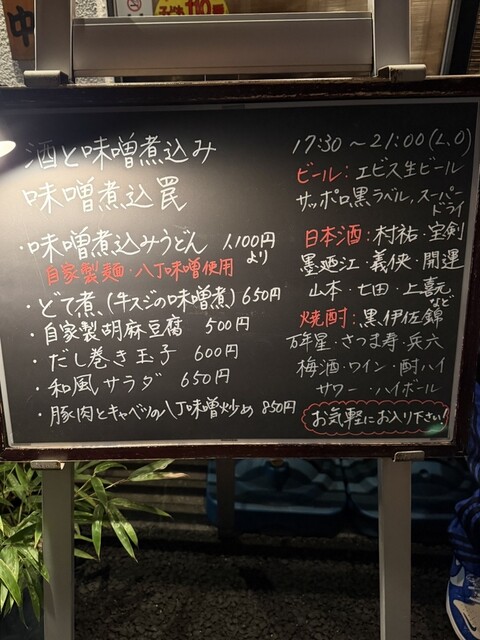 中
子ども110番
酒と味噌煮込み
味噌煮込罠
・味噌煮込みうどん 1,100円
より
自家製麺・八丁味噌使用
・どて煮、(牛スジの味噌煮) 650円
・自家製胡麻豆腐 500円
・だし巻き玉子 600円
・和風サラダ 650円
・豚肉とキャベツの八丁味噌炒め 850円
17:30～21:00(L.O)
ビール：エビス生ビール
サッポロ黒ラベル,スーパー
ドライ
日本酒：村祐・宝剣
墨廼江・義侠・開運
山本・七田・上喜元
など
焼酎：黒伊佐錦
万年星・さつま寿・兵六
梅酒・ワイン・酎ハイ
サワー・ハイボール
お気軽にお入り下さい!